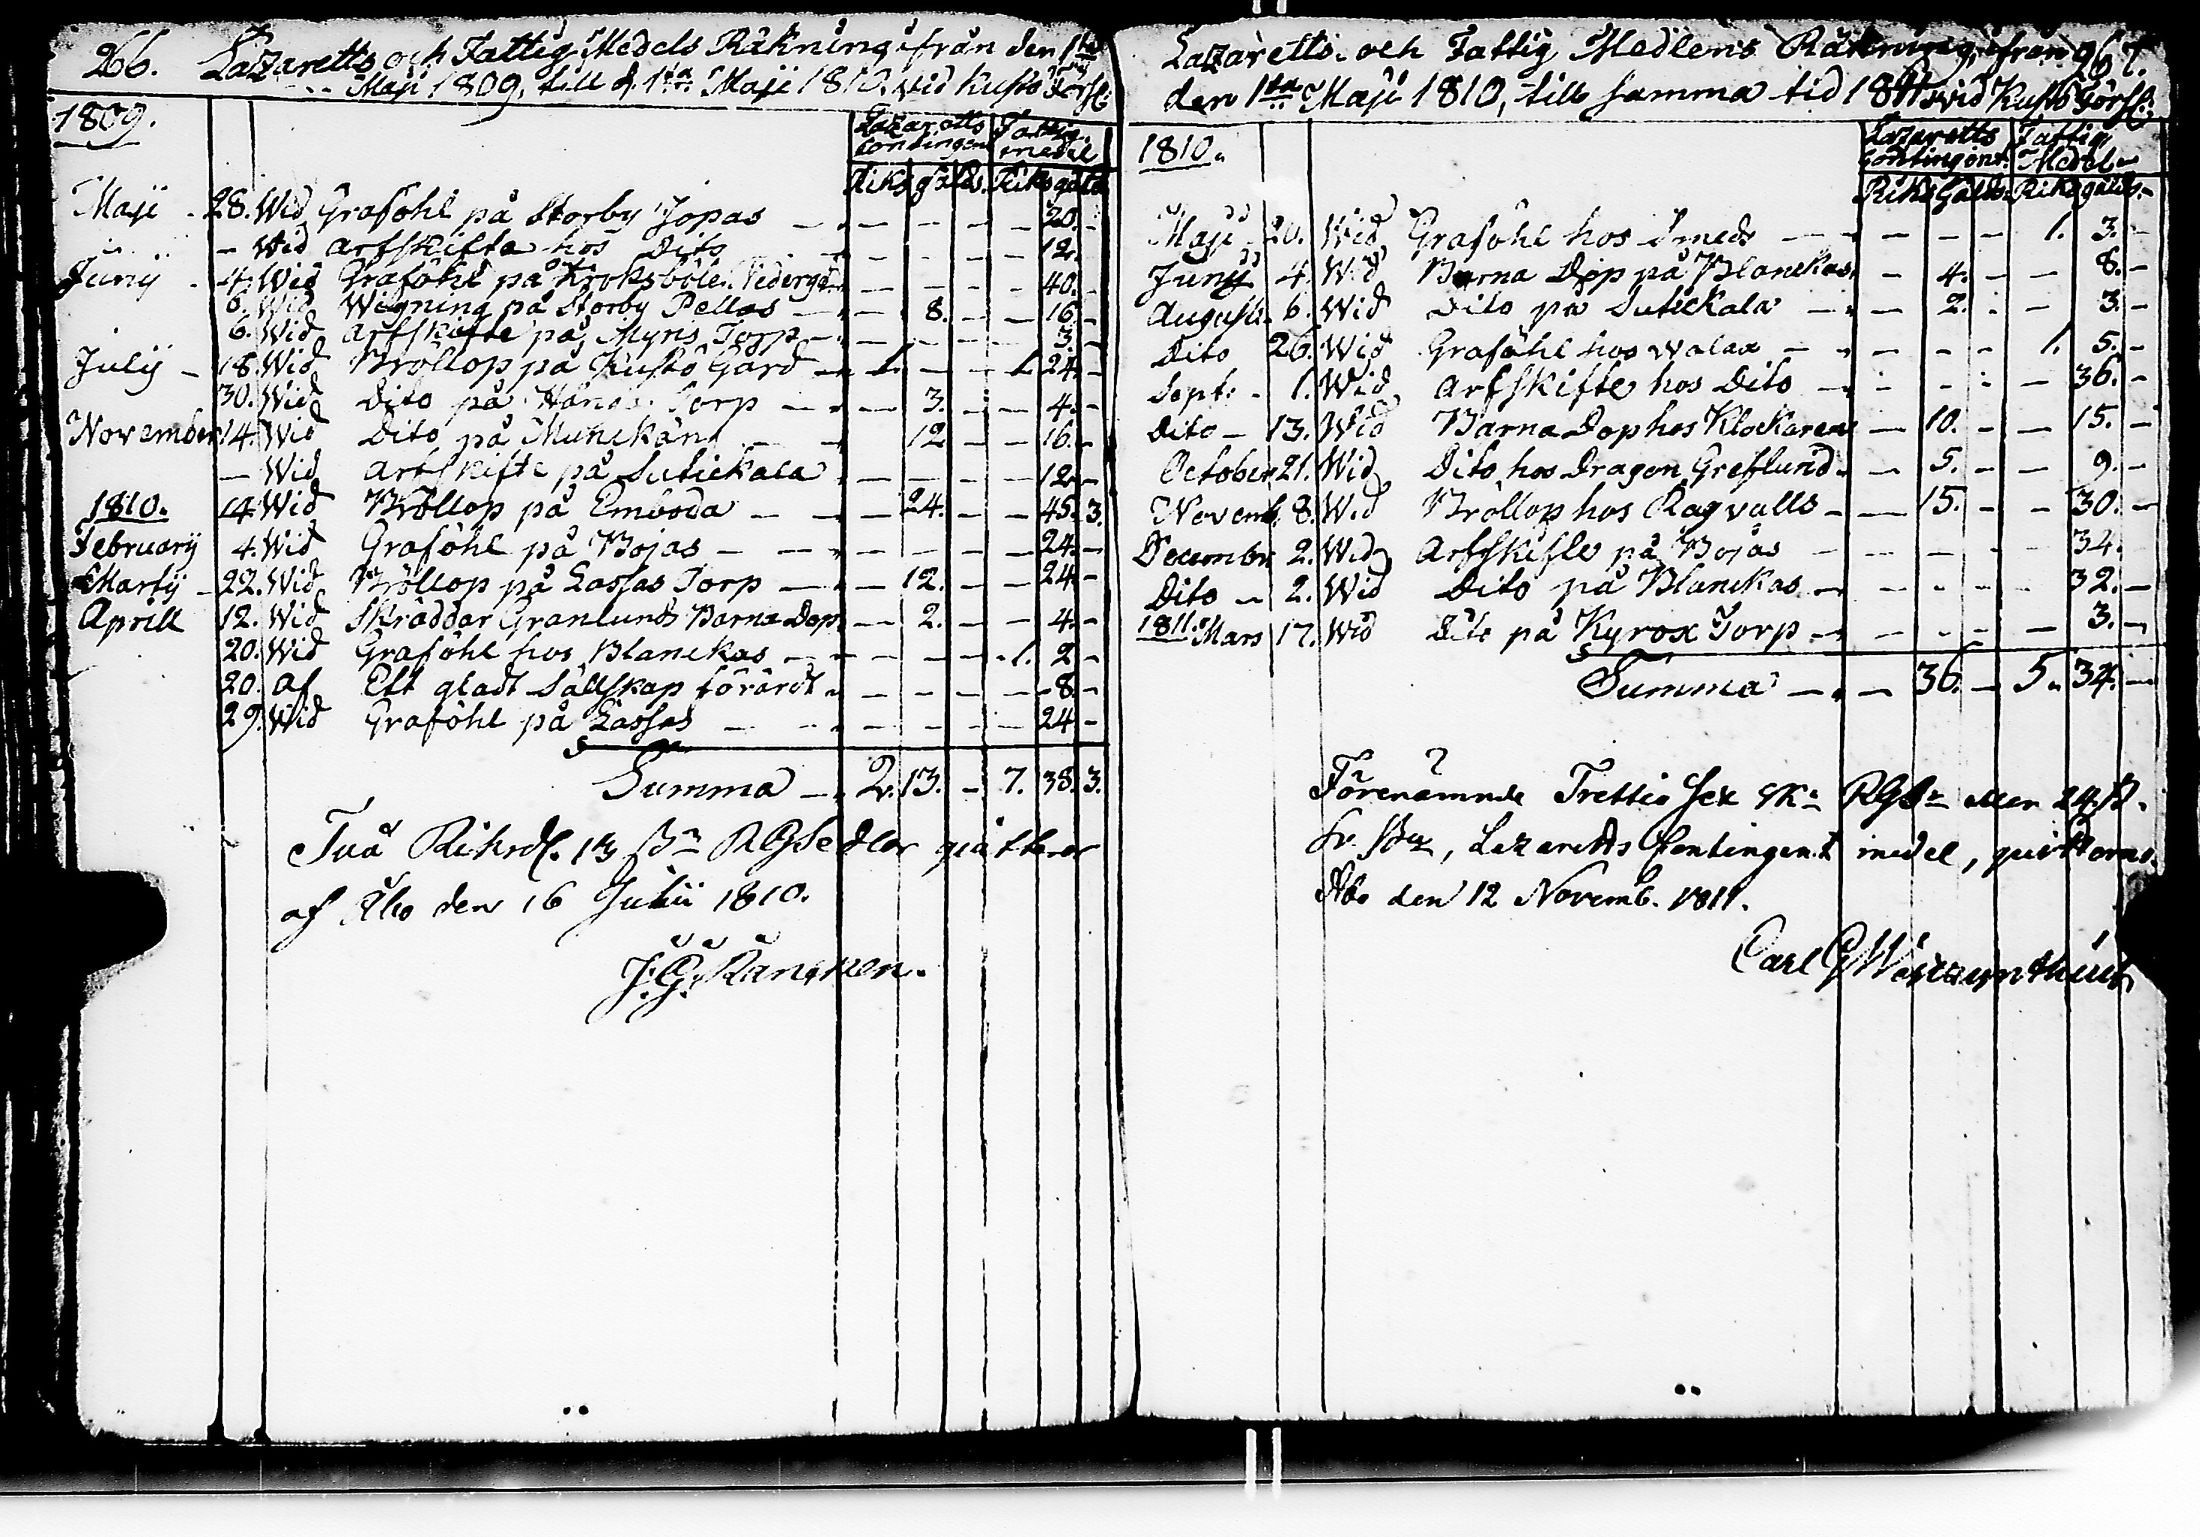 266. Lazaretts och Fattig Medels Räkning ifrån den 1sta
Maji 1809, till d. 1sta Maji 1810. vid Kusto Förs:
1809.
Lazaretts Contingent Fattig medel
Riks gälds. Riks gälds
Maji - 28. Wid Graföhl på Storby Jopas - - - - - 20. -
- Wid Arfskifte hos Dito - - - - - 12. -
Junij - 4. Wid Graföhl på Kroksböle - - - - - 40. -
6. Wid Wigning på Storby Pellas - - 8. - - 16. -
6. Wid Arfskifte på Myris Torp - - - - - 3. -
Julij - 18. Wid Bröllop på Kustö Gård - 1. - - 1. 24. -
30. Wid Dito på Torp - - 3. - - 4. -
November 14. Wid Dito på Munckän - - 12 - - 16. -
- Wid Arfskifte på Sutickala - - - - - 12 -
1810. 14. Wid Bröllop på Emboda - - 24. - - 45. 3.
Februarij 4. Wid Graföhl på Bojas - - - - - 24. -
Martij - 22. Wid Bröllop på Lassas Torp - - 12. - - 24. -
Aprill 12. Wid Skräddar Granlunds Barna Dop - 2. - - 4. -
20. Wid Graföhl hos Blanckas - - - - 1. 2 -
20. af Ett gladt Sällskap förärdt - - - - - 8. -
29. Wid Graföhl på Lassas - - - - - 24 -
Summa - 2. 13. - 7. 38. 3.
Två Riksdl. 13 RGSedlar qvitteras
af Åbo den 16 Julii 1810.
J. G. Rancken.
Lazaretts och Fattig Medlens Räkning, ifrån 267.
den 1sta Maji 1810, till samma tid 1811 vid Kustö Förs:
1810.
Lazaretts Contingent. Fattig Medel
Riks Gälds. Riks gälds.
Maji 20. Wid Graföhl hos Smeds - - - - 1. 3. -
Junij 4. Wid Barna Dop på Blanckas - 4. - - 8. -
Augusti. 6. Wid Dito på Sutickala - - 2. - - 3. -
Dito 26. Wid Graföhl hos Walax - - - - 1. 5. -
Sept: - 1. Wid Arfskifte hos Dito - - - - - 36. -
Dito - 13. Wid Barna Dop hos Klockaren - 10. - - 15. -
October 21. Wid Dito hos Dragon Greflund - - 5. - - 9. -
Novemb. 8. Wid Bröllop hos Ragvalls - - 15. - - 30. -
Decembr. 2. Wid Arfskifte på Bojas - - - - - 34. -
Dito - 2. Wid Dito på Blanckas - - - - - 32. -
1811. Mars 17. Wid Dito på Kyrox Torp - - - - - 3. -
Summa - - 36. - 5. 34. -
Förenämnde Trettio Sex
Lazaretts Contingent medel, qvitteras
Åbo den 12 Novemb. 1811.
Carl G